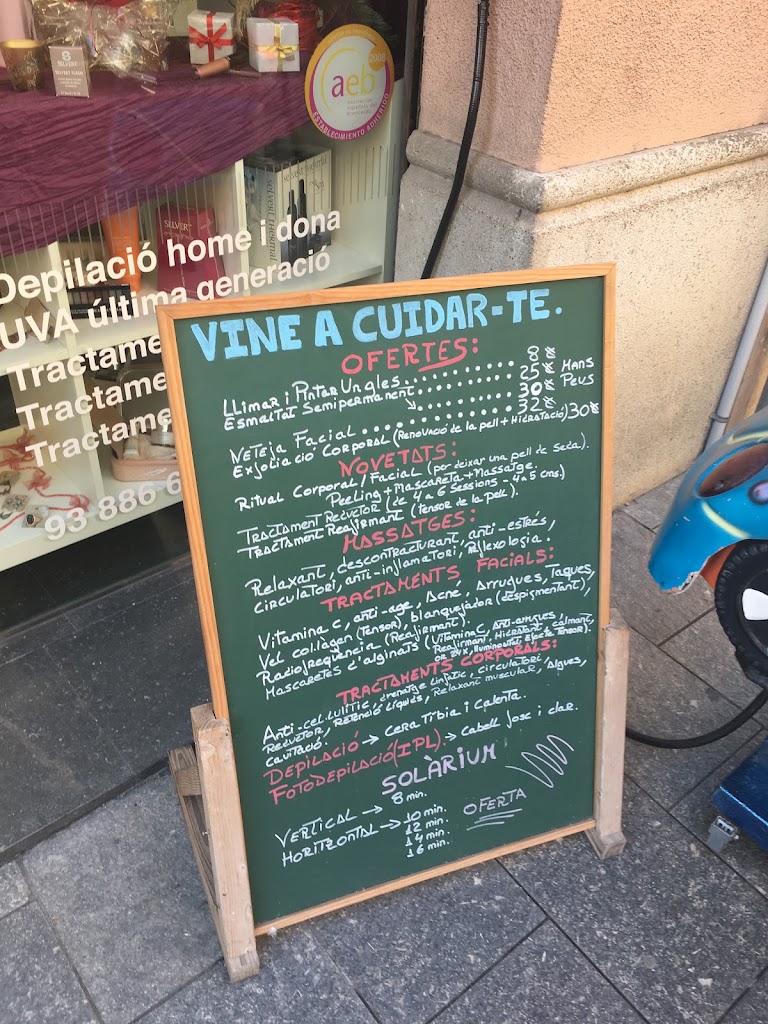 SELVERT
aeb
2008
ESTABLECIMIENTO ADHERIDO
SELVERT
Depilació home i dona
UVA última generació
Tractame
Tractame
Tractame
93 886 6
VINE A CUIDAR-TE.
OFERTES:
LLimar i Pintar Ungles 8€
25€ MANS
Esmaltat Semipermanent 30€ PEUS
Neteja Facial 32€
Exfoliació Corporal (Renovació de la pell + Hidratació) 30€
NOVETATS:
Ritual Corporal/Facial (per deixar una pell de seda).
Peeling + Mascareta + Massatge.
Tractament Reductor (de 4 a 6 sessions - 4 a 6 cms)
Tractament Reafirmant (Tensor de la pell).
MASSATGES:
Relaxant, descontracturant, anti-estrés,
circulatori, anti-inflamatori, reflexologia.
TRACTAMENTS FACIALS:
Vitamina C, anti-age, Acne, Arrugues, Taques,
Vel collagen (Tensor), blanquejador (despigmentant),
Radiofrequència (Reafirmant).
Mascaretes d'alginats (Vitamina C, Anti-arrugues,
Reafirmant, Hidratant, calmant,
or 24k, Iluminositat, Efecte Tensor).
TRACTAMENTS CORPORALS:
Anti-cel.lulític, drenatge linfàtic, circulatori
Reductor, Retenció líquids, Relaxant muscular, Algues,
cavitació.
DEPILACIÓ → Cera Tibia i Calenta.
FOTODEPILACIÓ (IPL) → Cabell fosc i clar.
SOLÀRIUM
VERTICAL → 8 min.
HORITZONTAL → 10 min.
12 min.
14 min.
16 min.
OFERTA